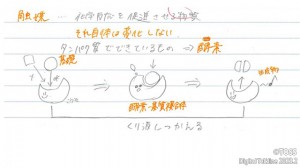 触媒 … 化学反応を促進させる物質
それ自体は変化しない
タンパク質でできているもの ⇒ 酵素
基質
酵素-基質複合体
生成物
くり返しつかえる
©TOSS
DigitalToUkiine 2021.2